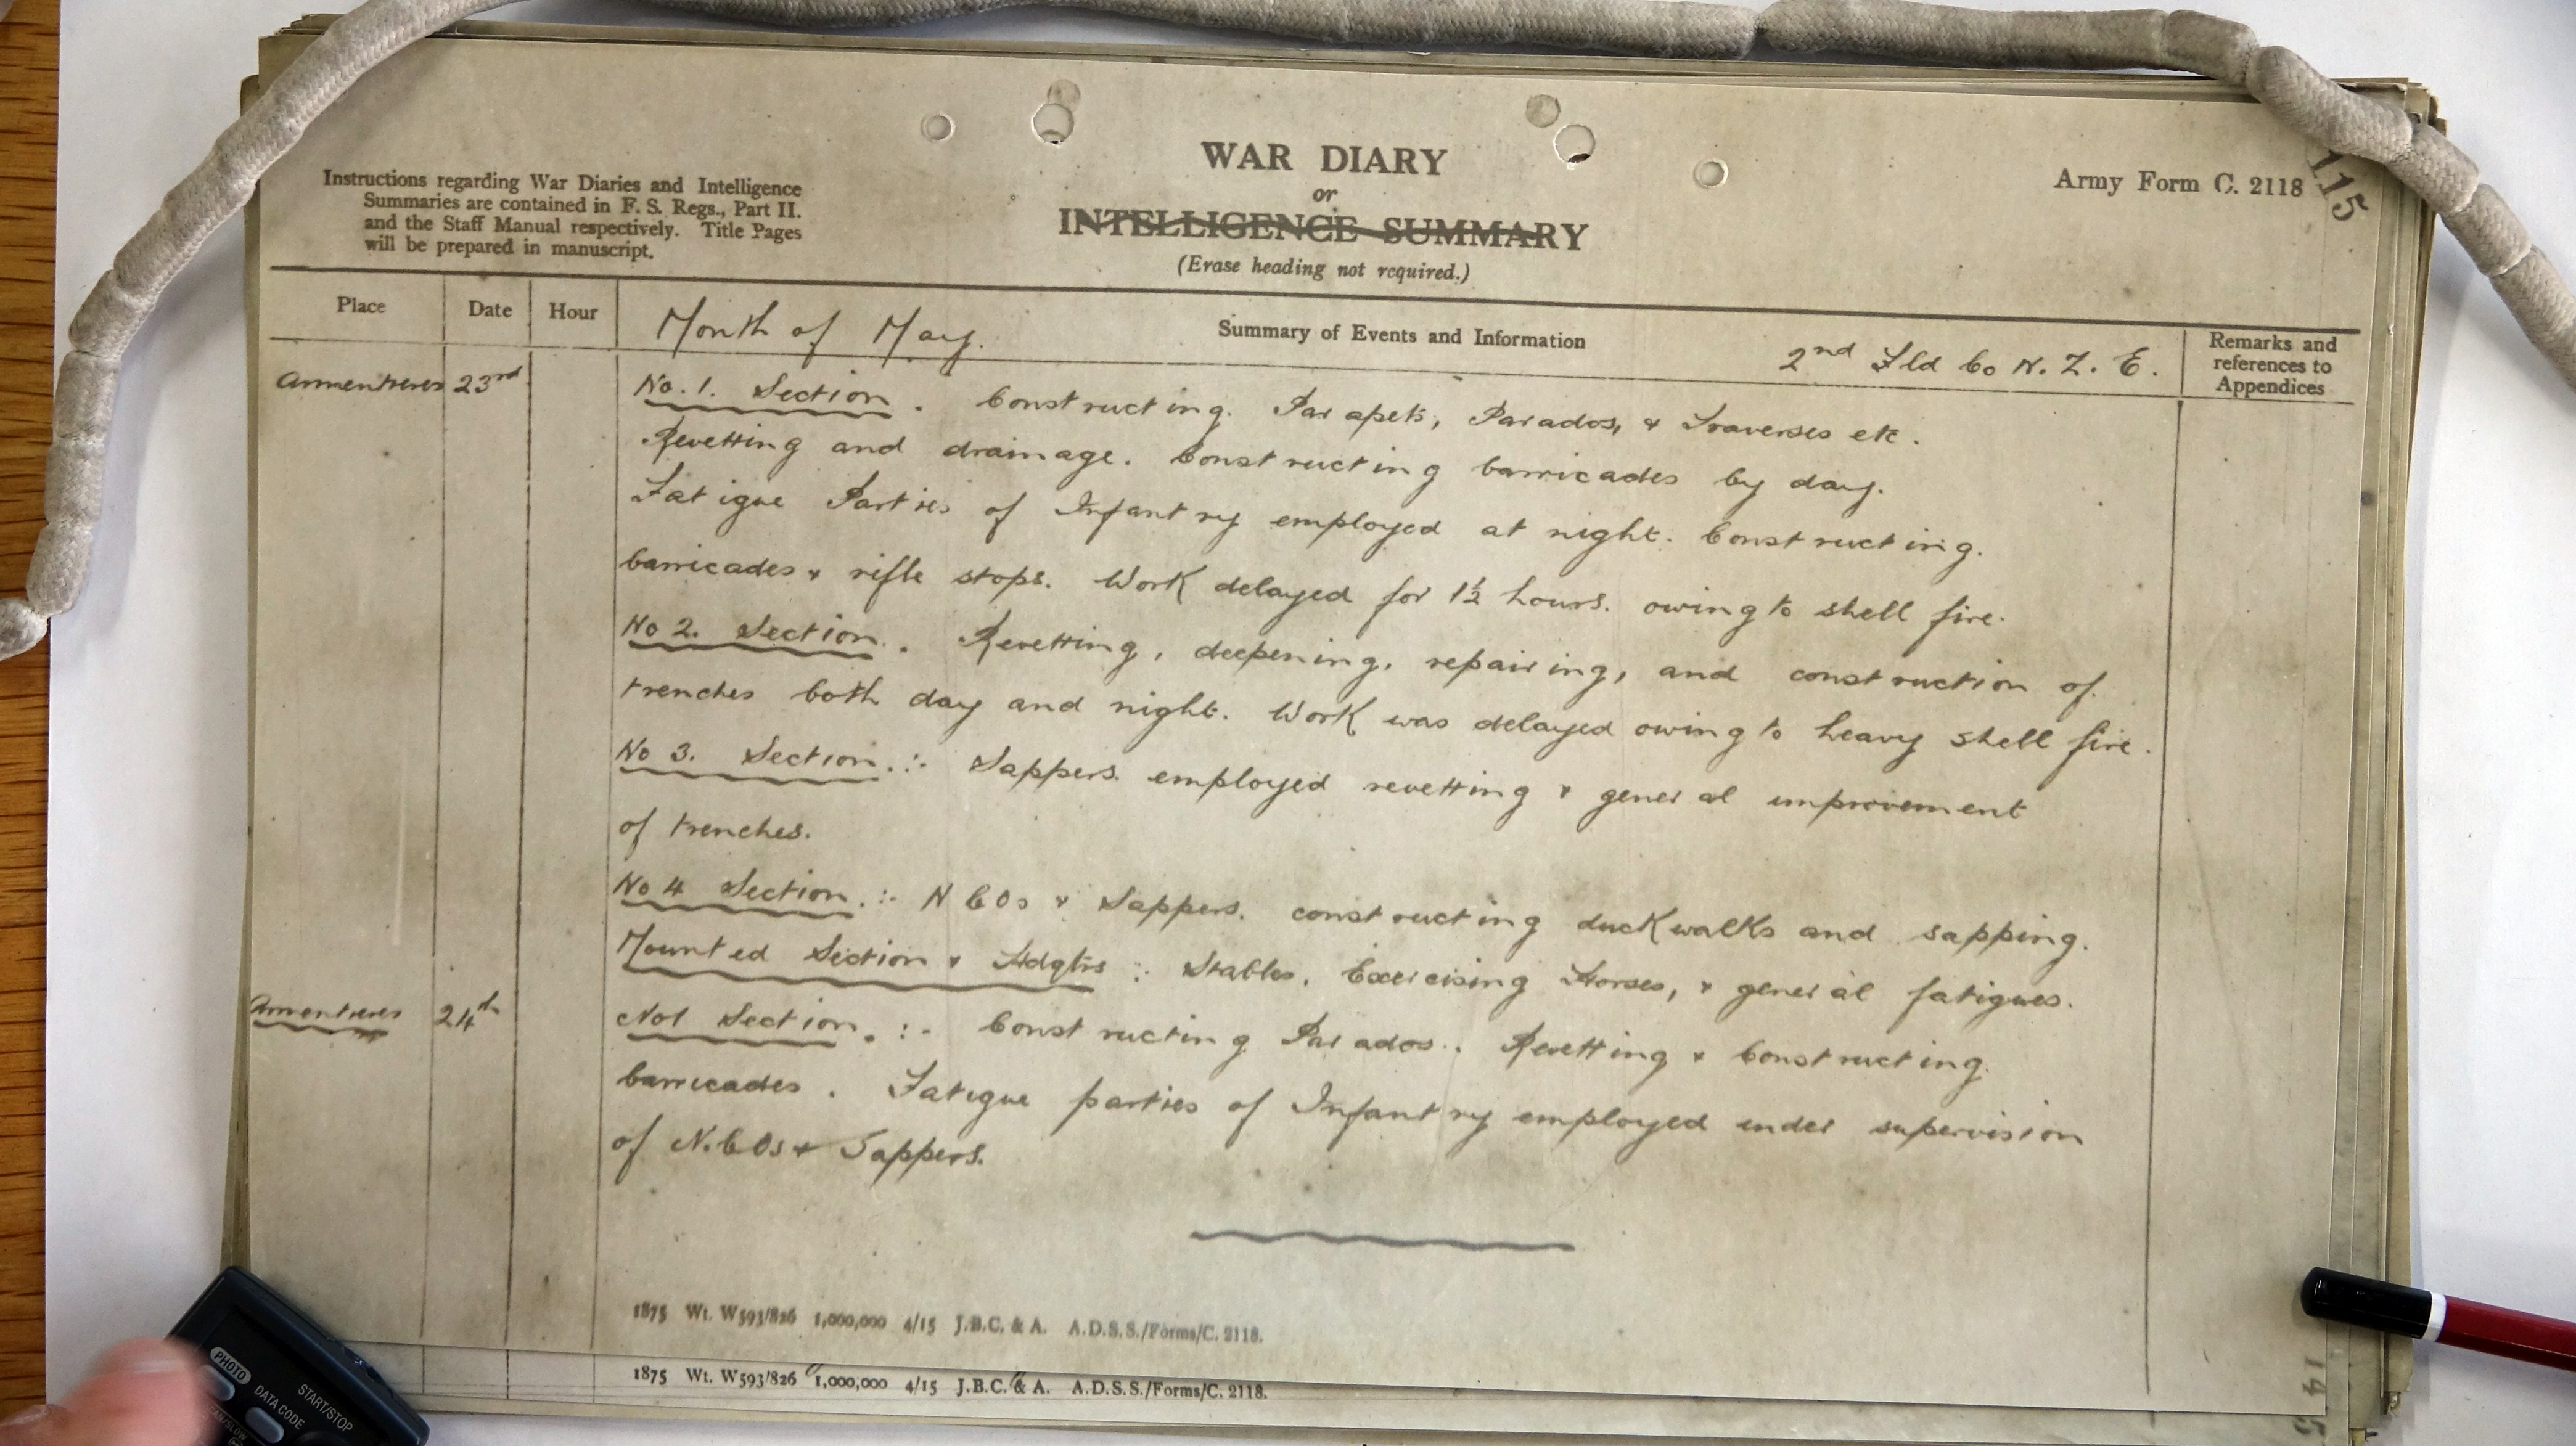 Instructions regarding War Diaries and Intelligence
Summaries are contained in F. S. Regs., Part II.
and the Staff Manual respectively. Title Pages
will be prepared in manuscript.
WAR DIARY
or
INTELLIGENCE SUMMARY
(Erase heading not required.)
Army Form C. 2118
115
Place
Date
Hour
Month of May.
Summary of Events and Information
2nd Fld Co N. Z. E.
Remarks and
references to
Appendices
Armentieres 23rd
No. 1. Section. Constructing. Parapets, Parados, & Traverses etc.
Revetting and drainage. Constructing barricades by day.
Fatigue Parties of Infantry employed at night. Constructing.
barricades & rifle stops. Work delayed for 1½ hours. owing to shell fire.
No 2. Section. Revetting, deepening, repairing, and construction of
trenches both day and night. Work was delayed owing to heavy shell fire.
No 3. Section. :- Sappers employed revetting & general improvement
of trenches.
No 4 Section. :- N COs & Sappers. constructing duckwalks and sapping.
Mounted Section & Hdqtrs : Stables. Exercising Horses, & general fatigues.
Armentieres 24th
No1 Section. :- Constructing Parados. Revetting & Constructing.
barricades. Fatigue parties of Infantry employed under supervision
of N.COs & Sappers.
1875 Wt. W593/826 1,000,000 4/15 J.B.C. & A. A.D.S.S./Forms/C. 2118.
1875 Wt. W593/826 1,000,000 4/15 J.B.C. & A. A.D.S.S./Forms/C. 2118.
PHOTO
DATA CODE
START/STOP